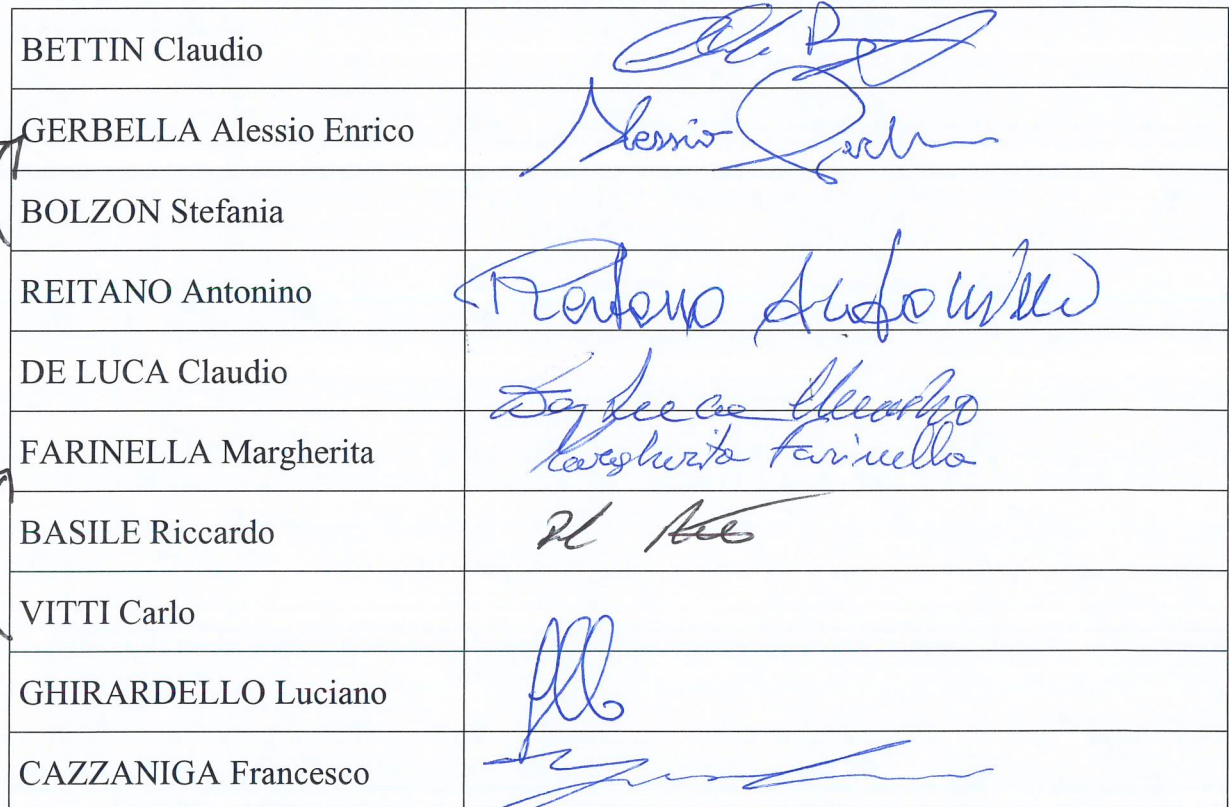 BETTIN Claudio
GERBELLA Alessio Enrico Alessio
BOLZON Stefania
REITANO Antonino Reitano Antonino
DE LUCA Claudio De Luca Claudio
FARINELLA Margherita Margherita Farinella
BASILE Riccardo
VITTI Carlo
GHIRARDELLO Luciano
CAZZANIGA Francesco